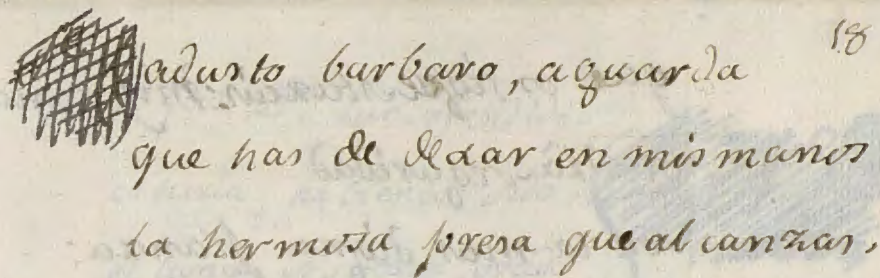 adusto barbaro, aguarda 18
que has de dexar en mis manos
la hermosa presa que alcanzas,